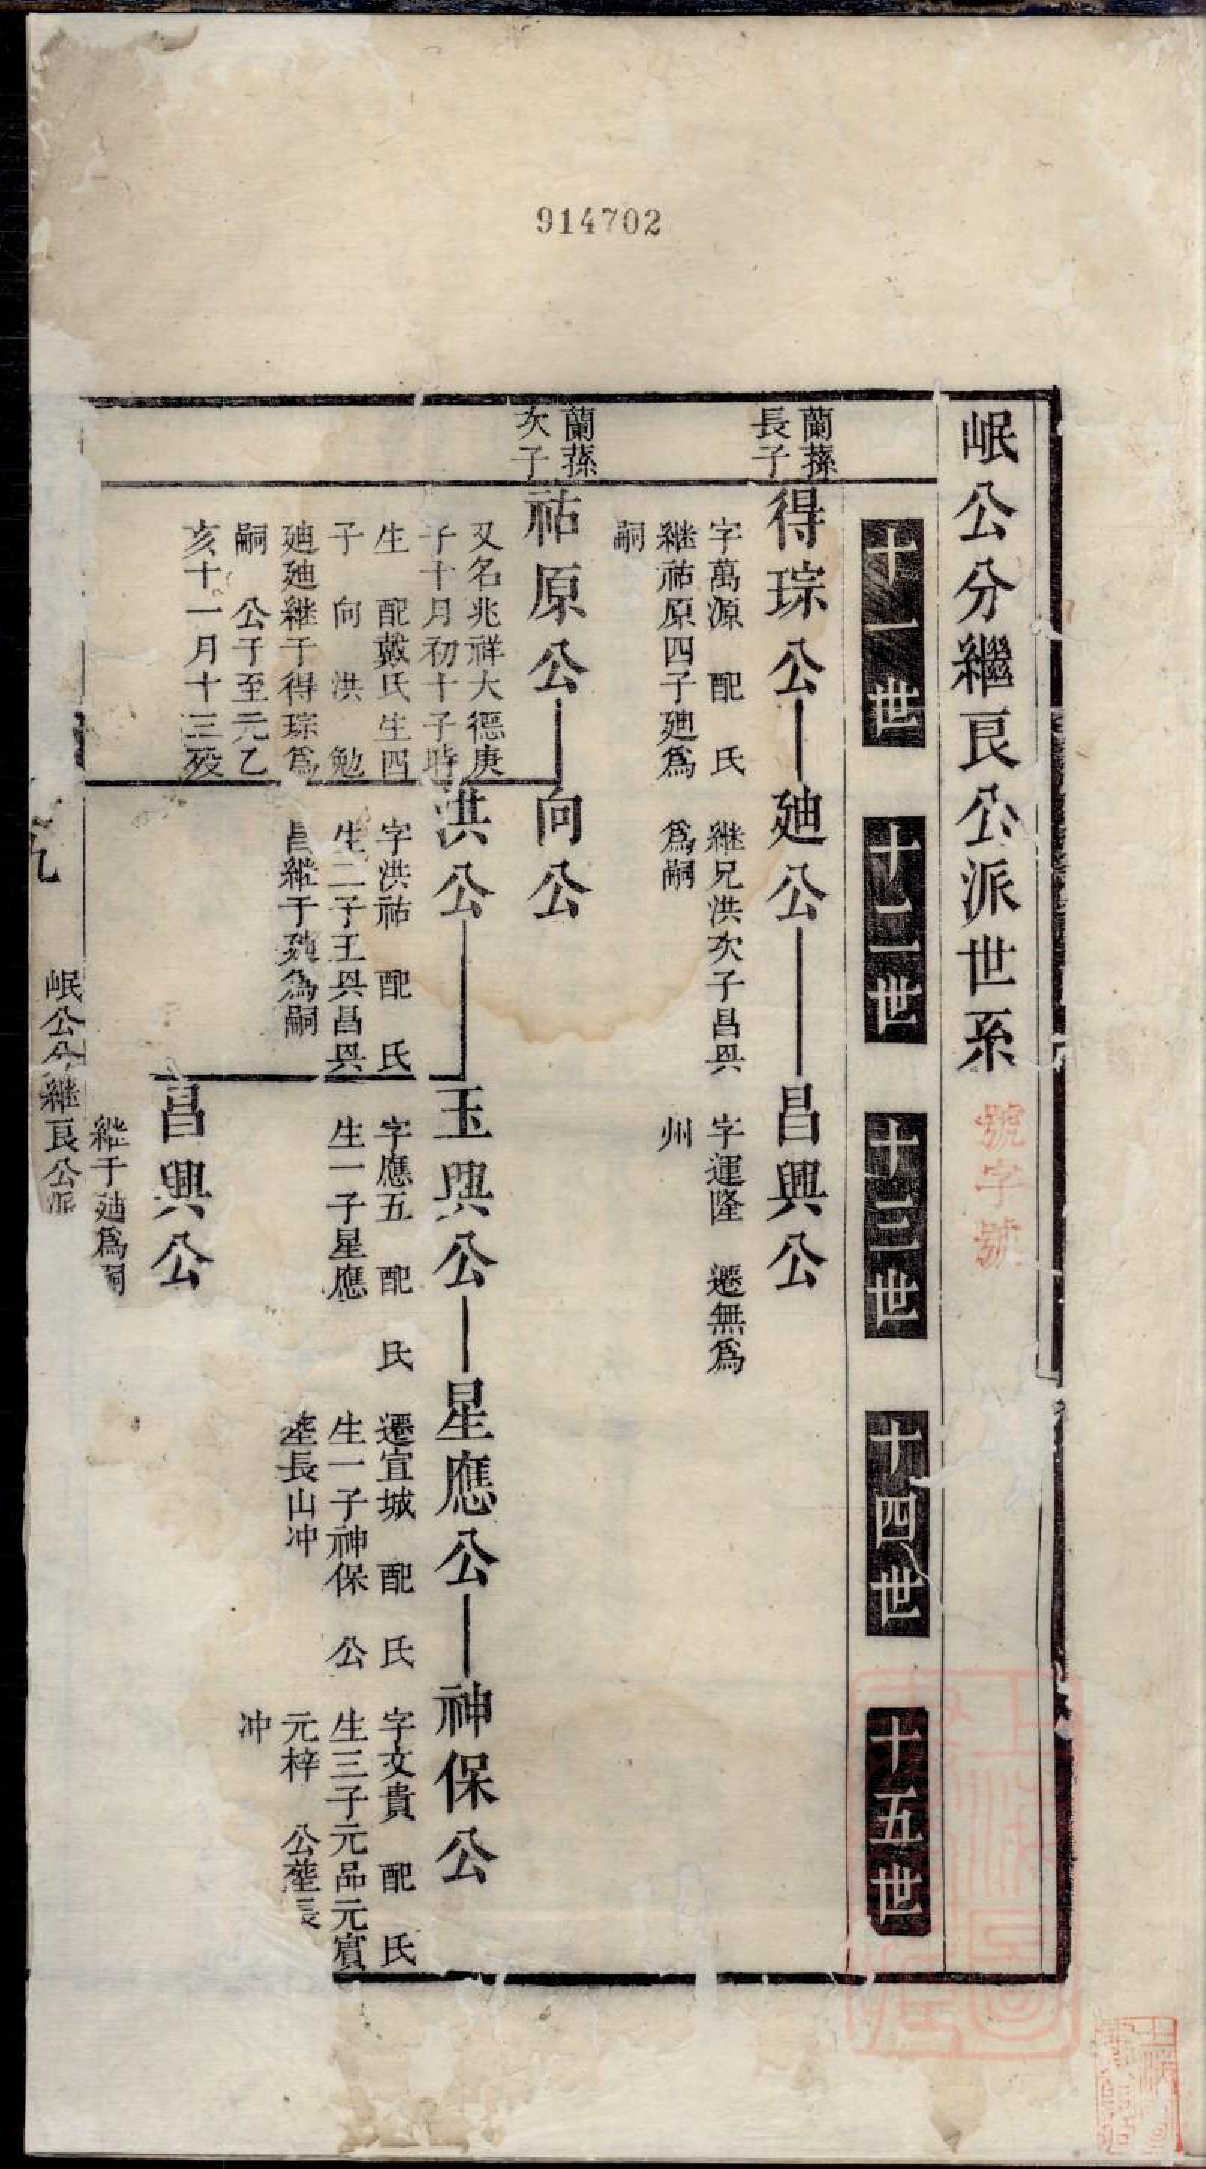 914702
岷公分繼良公派世系
號字號
十一世
十二世
十三世
十四世
十五世
蘭蓀
長子
得琮公
字萬源 配 氏
繼祐原四子廸爲
嗣
廸公
繼兄洪次子昌興
爲嗣
昌興公
字運隆 遷無爲
州
蘭蓀
次子
祐原公
又名兆祥大德庚
子十月初十子時
生 配戴氏生四
子 向 洪 勉
廸廸繼子得琮爲
嗣 公子至元乙
亥十一月十三歿
向公
洪公
字洪祐 配 氏
生二子玉興昌興
昌繼于廸爲嗣
玉興公
字應五 配 氏
生一子星應
星應公
遷宣城 配 氏
生一子神保 公
塟長山冲
神保公
字文貴 配 氏
生三子元品元賓
元梓 公塟長
冲
昌興公
繼于廸爲嗣
岷公分繼良公派